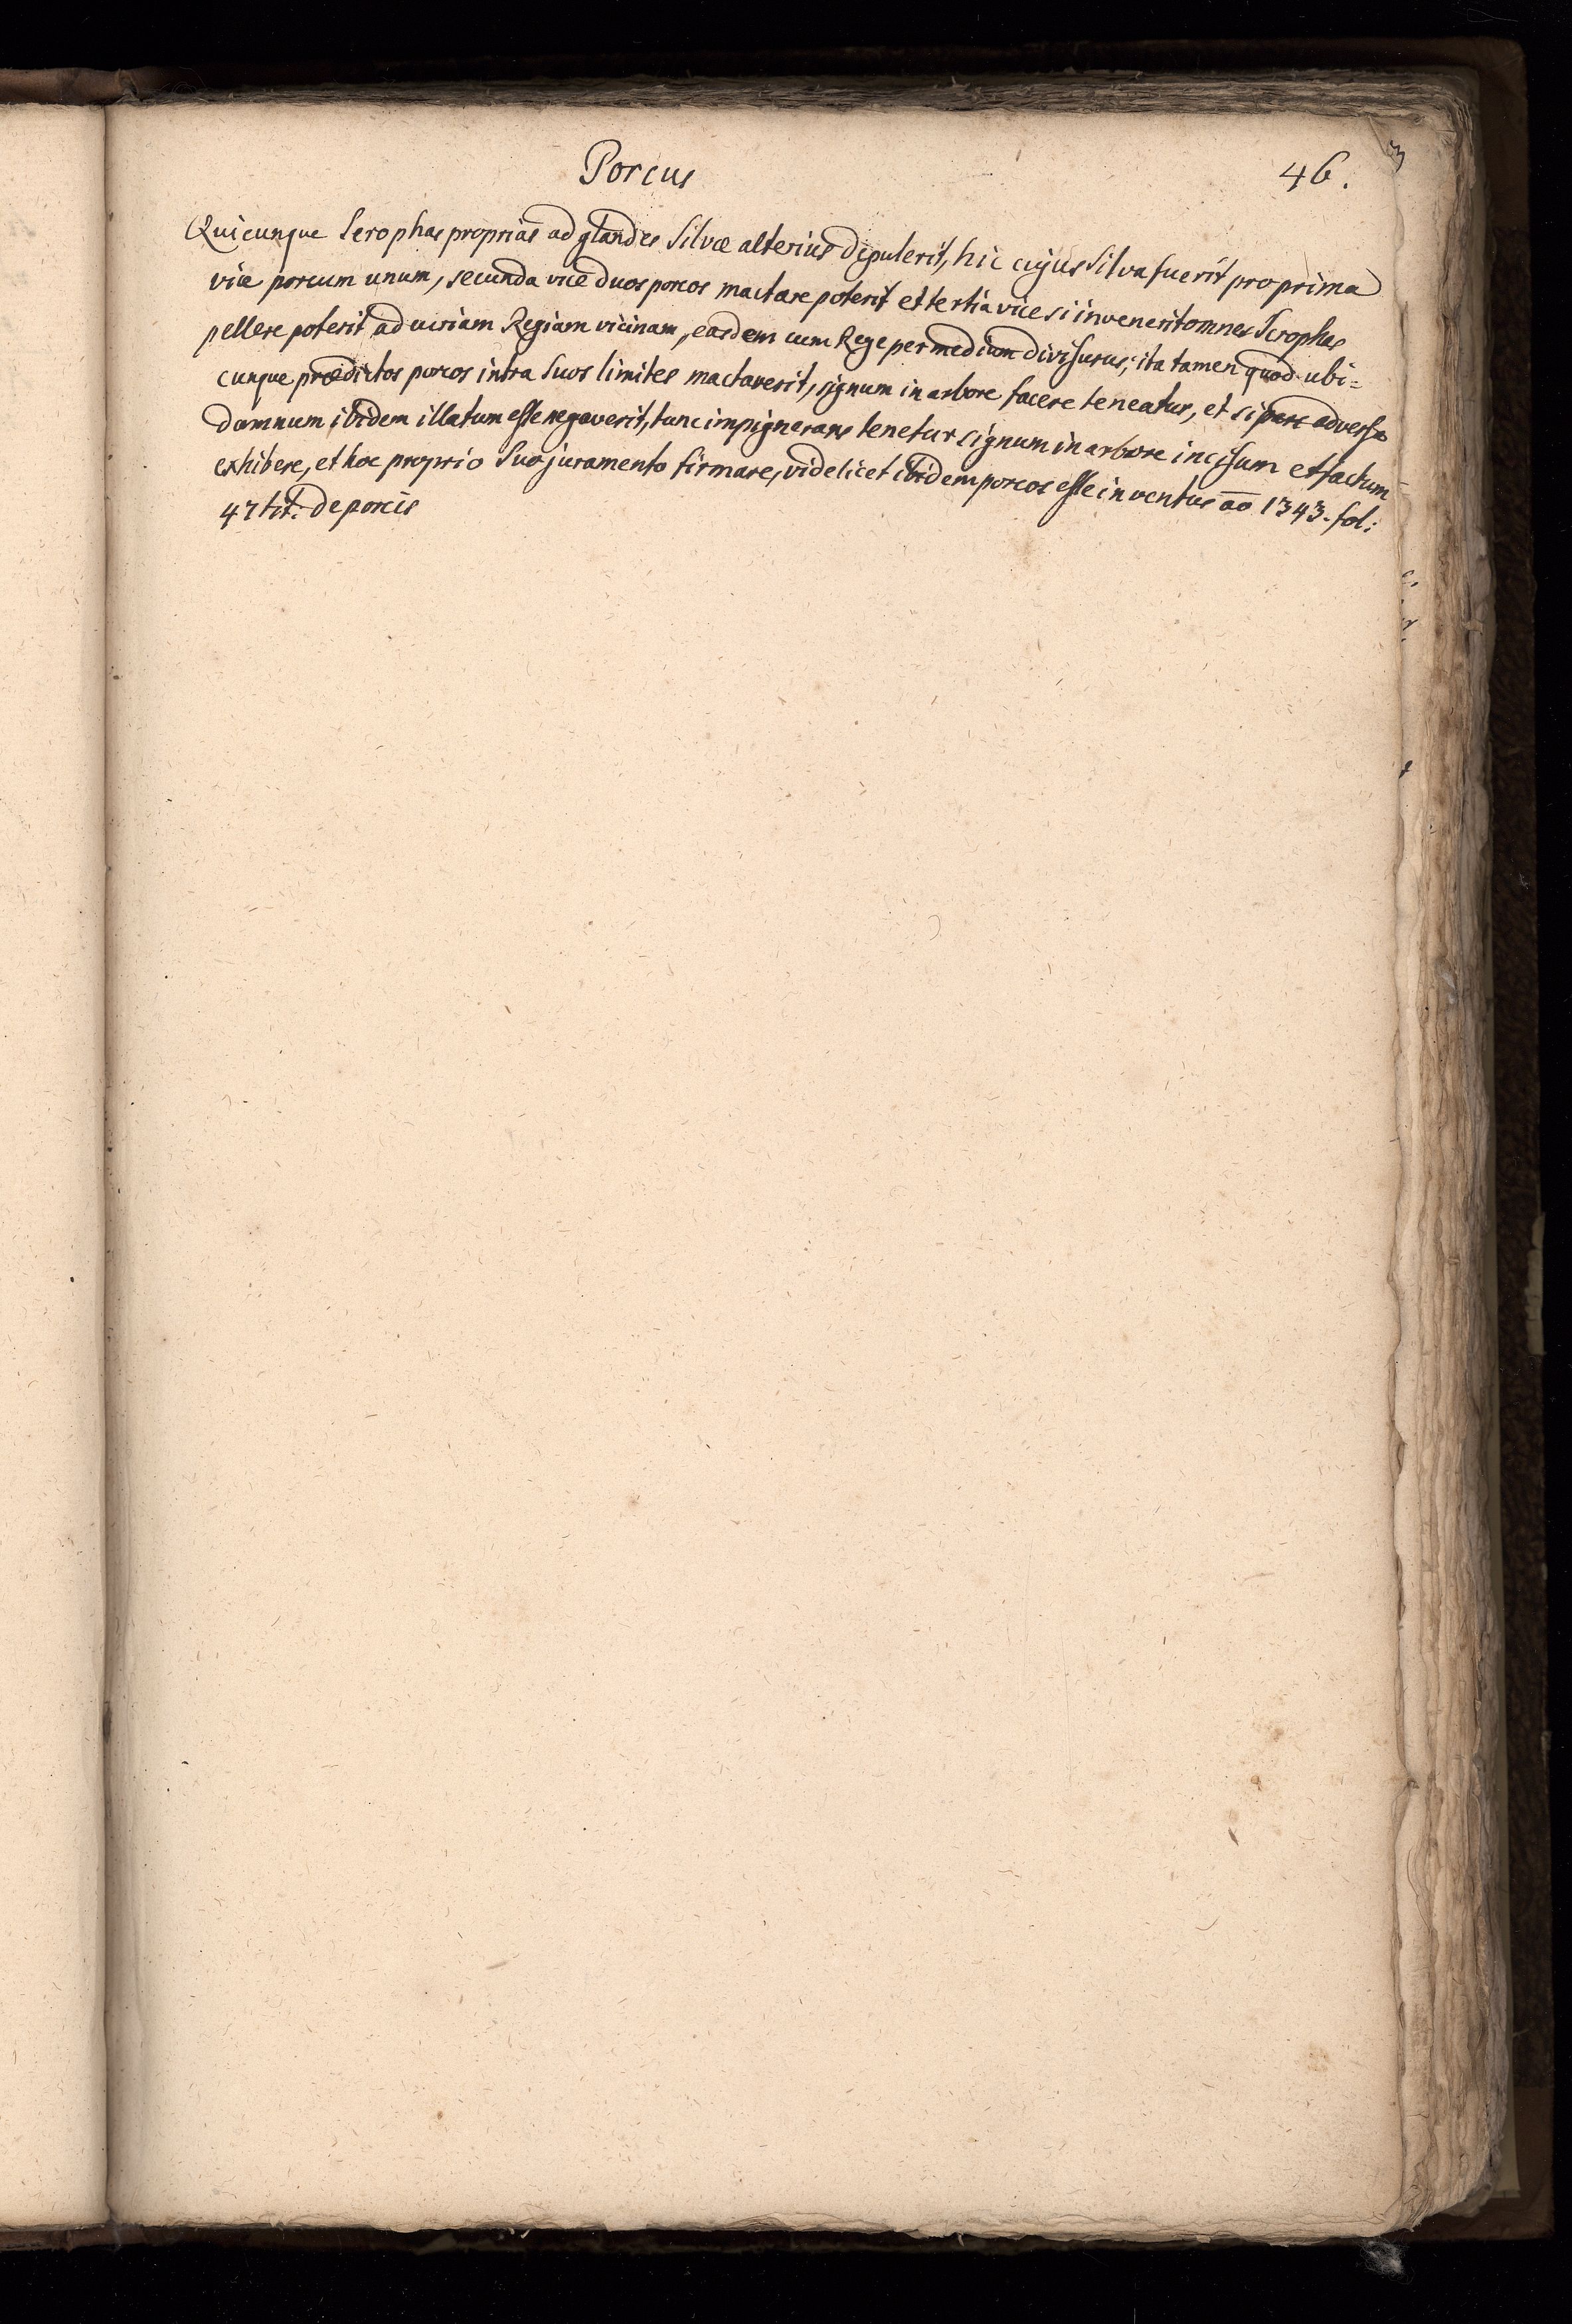 Porcus
46.
Quicunque Scrophas proprias ad glandes Silvæ alterius depulerit, hic cujus Silva fuerit pro prima
vice porcum unum, secunda vice duos porcos mactare poterit et tertia vice si invenerit omnes Scrophas
pellere poterit ad curiam Regiam vicinam, easdem cum Rege per medium divisurus; ita tamen quod ubi=
cunque prædictos porcos intra Suos limites mactaverit, signum in arbore facere teneatur, et si pars adversa
damnum ibidem illatum esse negaverit, tunc impignerans tenetur signum in arbore incisum et factum
exhibere, et hoc proprio Suo juramento firmare, videlicet ibidem porcos esse inventus aō 1343. fol:
47 tit: de porcis